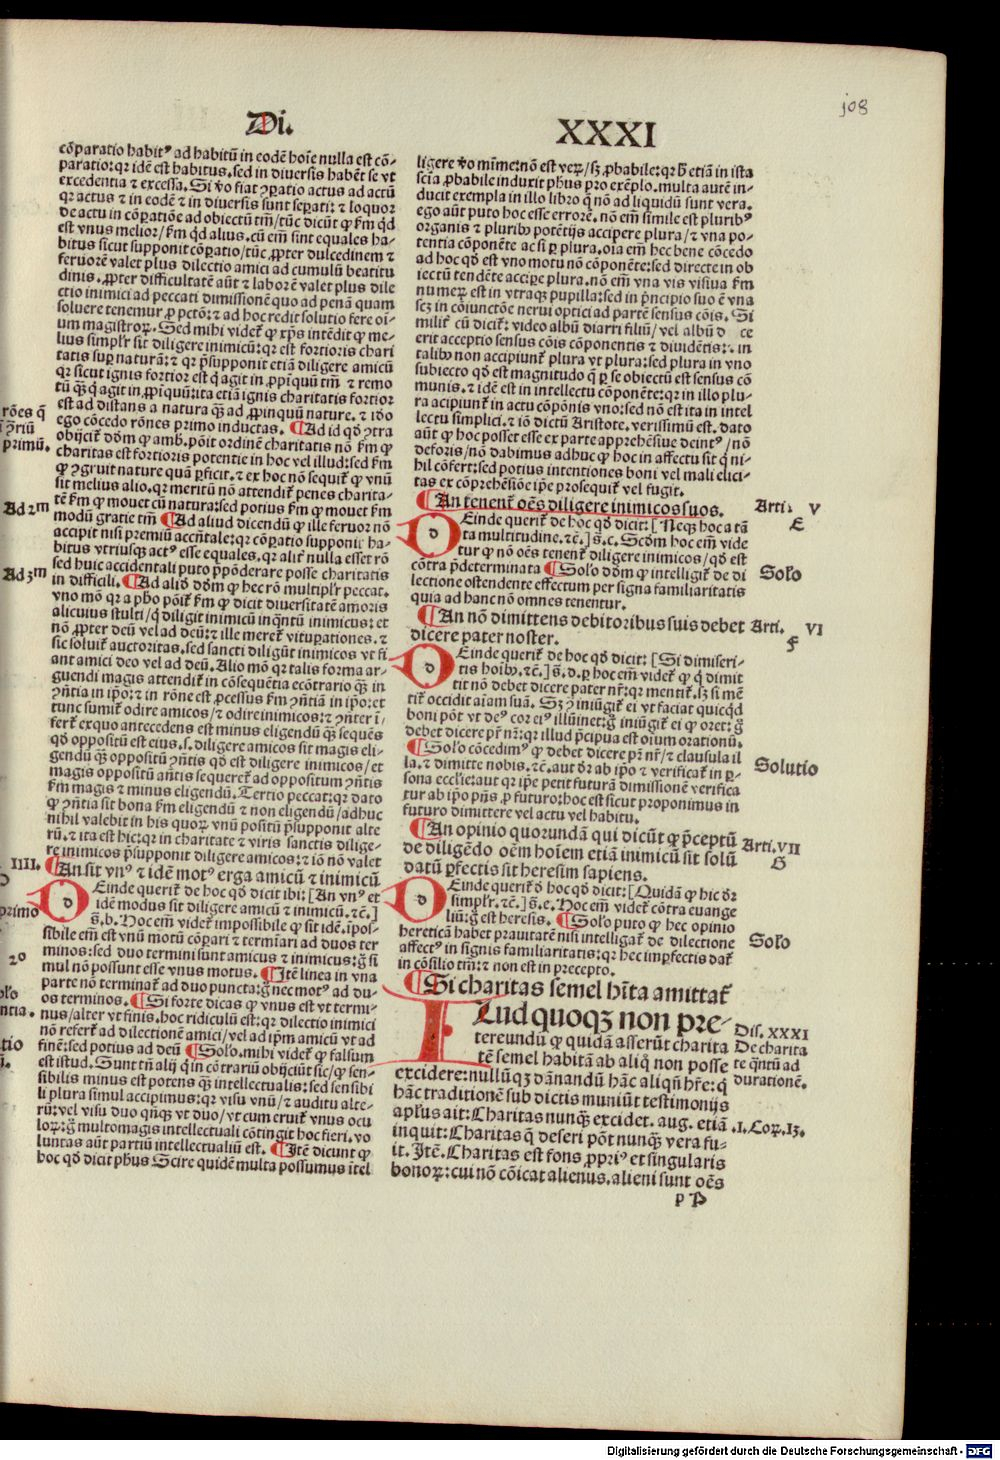 108
Di.
XXXI
cōparatio habitꝰ ad habitū in eodē hoīe nulla est cō-
paratio: qr idē est habitus. sed in diuersis habēt se vt
excedentia ⁊ excessa. Si v̄o fiat ꝯparatio actus ad actū
qr actus ⁊ in eodē ⁊ in diuersis sunt sepati: ⁊ loquor
de actu in cōpatiōe ad obiectū tm̄/tūc dicūt ꝙ ẜm qd̄
est vnus melior/ẜm qd̄ alius. cū em̄ sint equales ha-
bitus sicut supponit cōpatio/tūc ꝓpter dulcedinem ⁊
feruorē valet plus dilectio amici ad cumulū beatitu
dinis. ꝓpter difficultatē aūt ⁊ laborē valet plus dile
ctio inimici ad peccati dimissionē quo ad penā quam
soluere tenemur ꝓ pctō: ⁊ ad hoc redit solutio fere oī-
um magistroꝝ. Sed mihi videt̄ ꝙ xp̄s intēdit ꝙ me-
lius simplr̄ sit diligere inimicū: qr est fortioris chari
tatis sup naturā: ⁊ qr p̄supponit etiā diligere amicū
qr sicut ignis fortior est q̄ agit in ꝓpīquū tm̄ ⁊ remo
tū q̄ꝫ q̄ agit in ꝓpīquū: ita etiā ignis charitatis fortior
est ad distans a natura q̄ꝫ ad ꝓpinquū nature. ⁊ iō
ego cōcedo rōnes primo inductas. ¶Ad id qd̄ ꝯtra
obijcit̄ dōm ꝙ amb. pōit ordinē charitatis nō ẜm ꝙ
charitas est fortioris potentie in hoc vel illud: sed ẜm
ꝙ ꝯgruit nature quā ꝑficit. ⁊ ex hoc nō sequit̄ ꝙ vnū
sit melius alio. qr meritū nō attendit̄ penes charita-
tē ẜm ꝙ mouet cū natura: sed potius ẜm ꝙ mouet ẜm
modū gratie tm̄ ¶Ad aliud dicendū ꝙ ille feruor nō
accipit nisi premiū accn̄tale: qr cōpatio supponit ha-
bitus vtriusqꝫ actꝰ esse equales. qr alit̄ nulla esset rō
sed huic accidentali puto p̄pōderare posse charitatis
in difficili. ¶Ad aliō dōm ꝙ hec rō multiplr̄ peccat.
vno mō qr a pho pōit̄ ẜm ꝙ dicit diuersitatē amoris
alicuius stulti/q̄ diligit inimicū inq̄ntū inimicus: et
nō ꝓpter deū vel ad deū: ⁊ ille meret̄ vitupationes. ⁊
sic soluit̄ auctoritas. sed sancti diligūt inimicos vt fi
ant amici deo vel ad deū. Alio mō qr talis forma ar-
guendi magis attendit̄ in cōsequētia ecōtrario q̄ꝫ in
ꝯn̄tia in ip̄o: ⁊ in rōne est ꝓcessus ẜm ꝯn̄tiā in ip̄o: et
tunc sumit̄ odire amicos/⁊ odire inimicos: ⁊ ꝯn̄ter ī-
fert̄ ex quo antecedens est minus eligendū q̄ꝫ sequēs
qd̄ oppositū est eius. s. diligere amicos sit magis eli-
gendū q̄ꝫ oppositū ꝯn̄tis qd̄ est diligere inimicos/et
magis oppositū an̄tis sequeret̄ ad oppositum ꝯn̄tis
ẜm magis ⁊ minus eligendū. Tertio peccat: qr dato
ꝙ ꝯn̄tia sit bona ẜm eligendū ⁊ non eligendū/adhuc
nihil valebit in his quoꝝ vnū positū p̄supponit alte
rū. ⁊ ita est hic: qr in charitate ⁊ viris sanctis dilige-
re inimicos p̄supponit diligere amicos: ⁊ iō nō valet
¶An sit vnꝰ ⁊ idē motꝰ erga amicū ⁊ inimicū
Deinde querit̄ de hoc qd̄ dicit ibi: [An vnꝰ et
idē modus sit diligere amicū ⁊ inimicū. ⁊c̄.]
s̄. b. Hoc em̄ videt̄ impossibile ꝙ sit idē. ipos-
sibile em̄ est vnū motū cōpari ⁊ termīari ad duos ter
minos: sed duo termini sunt amicus ⁊ inimicus: g̊ si
mul nō possunt esse vnus motus. ¶Itē linea in vna
parte nō terminat̄ ad duo puncta: g̊ nec motꝰ ad du-
os terminos. ¶Si forte dicas ꝙ vnus est vt termi-
nus/alter vt finis. hoc ridiculū est: qr dilectio inimici
nō refert̄ ad dilectionē amici/vel ad ip̄m amicū vt ad
finē: sed potius ad deū ¶Solo. mihi videt̄ ꝙ falsum
est istud. Sunt tn̄ alij q̄ in cōtrariū obijciūt sic/ꝙ sen-
sibilis minus est potens q̄ꝫ intellectualis: sed sensibi
li plura simul accipimus: qr visu vnū/⁊ auditu alte-
rū: vel visu duo qn̄qꝫ vt duo/vt cum eruit̄ vnus ocu
loꝝ: g̊ multomagis intellectuali cōtingit hoc fieri. vo
luntas aūt partiū intellectualiū est. ¶Itē dicunt ꝙ
hoc qd̄ dicit phus Scire quidē multa possumus ītel
rōes q̄
ī ꝯriū
primū.
Ad 2m
Ad 3m
IIII.
primo
2o
ntia.
ligere v̄o mīme: nō est veꝝ/sꝫ ꝓbabile: qr b̄ etiā in ista
sciā ꝓbabile induxit phus pro exēplo. multa autē in-
ducit exempla in illo libro q̄ nō ad liquidū sunt vera.
ego aūt puto hoc esse errorē. nō em̄ simile est pluribꝰ
organis ⁊ pluribꝰ potētijs accipere plura/⁊ vna po-
tentia cōponēte ac si ꝑ plura. oia em̄ hec bene cōcedo
ad hoc qd̄ est vno motu nō cōponēte: sed directe in ob
iectū tendēte accipe plura. nō em̄ vna vis visiua ẜm
numeꝝ est in vtraqꝫ pupilla: sed in p̄ncipio suo ē vna
scꝫ in cōiunctōe nerui optici ad partē sensus cōis. Si
milit̄ cū dicit̄: video albū diarri filiū/vel albū d ce
erit acceptio sensus cōis cōponentis ⁊ diuidētis: in
talibꝰ non accipiunt̄ plura vt plura: sed plura in vno
subiecto qd̄ est magnitudo q̄ ꝑ se obiectū est sensus cō
munis. ⁊ idē est in intellectu cōponēte: qr in illo plu-
ra acipiunt̄ in actu cōpōnis vno: sed nō est ita in intel
lectu simplici. ⁊ iō dictū Aristote. verissimū est. dato
aūt ꝙ hoc posset esse ex parte apprehēsiue deintꝰ/nō
deforis/nō dabimus adhuc ꝙ hoc in affectu sit q̄ ni-
hil cōfert: sed potius intentiones boni vel mali elici-
tas ex cōprehēsiōe ip̄e prosequit̄ vel fugit.
¶An tenent̄ oēs diligere inimicos suos.
Deinde querit̄ de hoc qd̄ dicit: [Neqꝫ hoc a tā
ta multitudine. ⁊c̄.] s̄. c. Scdm hoc em̄ vide
tur ꝙ nō oēs tenent̄ diligere inimicos/qd̄ est
cōtra p̄determinata ¶Solo dōm ꝙ intelligit̄ de di
lectione ostendente effectum per signa familiaritatis
quia ad hanc nō omnes tenentur.
¶An nō dimittens debitoribus suis debet
dicere pater noster.
Deinde querit̄ de hoc qd̄ dicit: [Si dimiseri-
tis hoībꝰ. ⁊c̄.] s̄. d. ꝑ hoc em̄ videt̄ ꝙ q̄ dimit
tit nō debet dicere pater nr̄: qr mentit̄. sꝫ si mē
tit̄ occidit aīam suā. Sꝫ ꝯ iniūgit̄ ei vt faciat quicqd̄
boni pōt vt deꝰ cor eiꝰ illūinet: g̊ iniūgit̄ ei ꝙ oret: g̊
debet dicere pr̄ nr̄: qr illud p̄cipua est oīum orationū.
¶Solo cōcedimꝰ ꝙ debet dicere pr̄ nr̄/⁊ clausula il
la. ⁊ dimitte nobis. ⁊c̄. aut dr̄ ab ip̄o ⁊ verificat̄ in ꝑ-
sona ecclīe: aut qr ip̄e petit futurā dimissionē verifica
tur ab ip̄o pn̄s ꝑ futuro: hoc est sicut proponimus in
futuro dimittere vel actu vel habitu.
¶An opinio quorundā qui dicūt ꝙ p̄ceptū
de diligēdo oēm hoīem etiā inimicū sit solū
datū ꝑfectis sit heresim sapiens.
Deinde querit̄ d̄ hoc qd̄ dicit: [Quidā ꝙ hic dr̄
simplr̄. ⁊c̄.] s̄. e. Hoc em̄ videt̄ cōtra euange
liū: g̊ est heresis. ¶Solo puto ꝙ hec opinio
hereticā habet prauitatē nisi intelligat̄ de dilectione
affectꝰ in signis familiaritatis: qr hec imꝑfectis dat̄
in cōsilio tm̄: ⁊ non est in precepto.
¶Si charitas semel hīta amittat̄
Illud quoqꝫ non pre-
tereundū ꝙ quidā asserūt charita
tē semel habitā ab aliq̊ non posse
excidere: nullūqꝫ dānandū hāc aliqn̄ hr̄e: q̄
hāc traditionē sub dictis muniūt testimonijs
apl̄us ait: Charitas nunqꝫ excidet. aug. etiā
inquit: Charitas q̄ deseri pōt nunqꝫ vera fu-
it. Itē. Charitas est fons ꝓpriꝰ et singularis
bonoꝝ: cui nō cōicat alienus. alieni sunt oēs
p P
Arti. V
E
Solo
Arti. VI
F
Solutio
Arti. VII
G
Solo
Dis. XXXI
De charita
te q̄ntū ad
durationē.
.1. Coꝝ. 13.
Digitalisierung gefördert durch die Deutsche Forschungsgemeinschaft - DFG